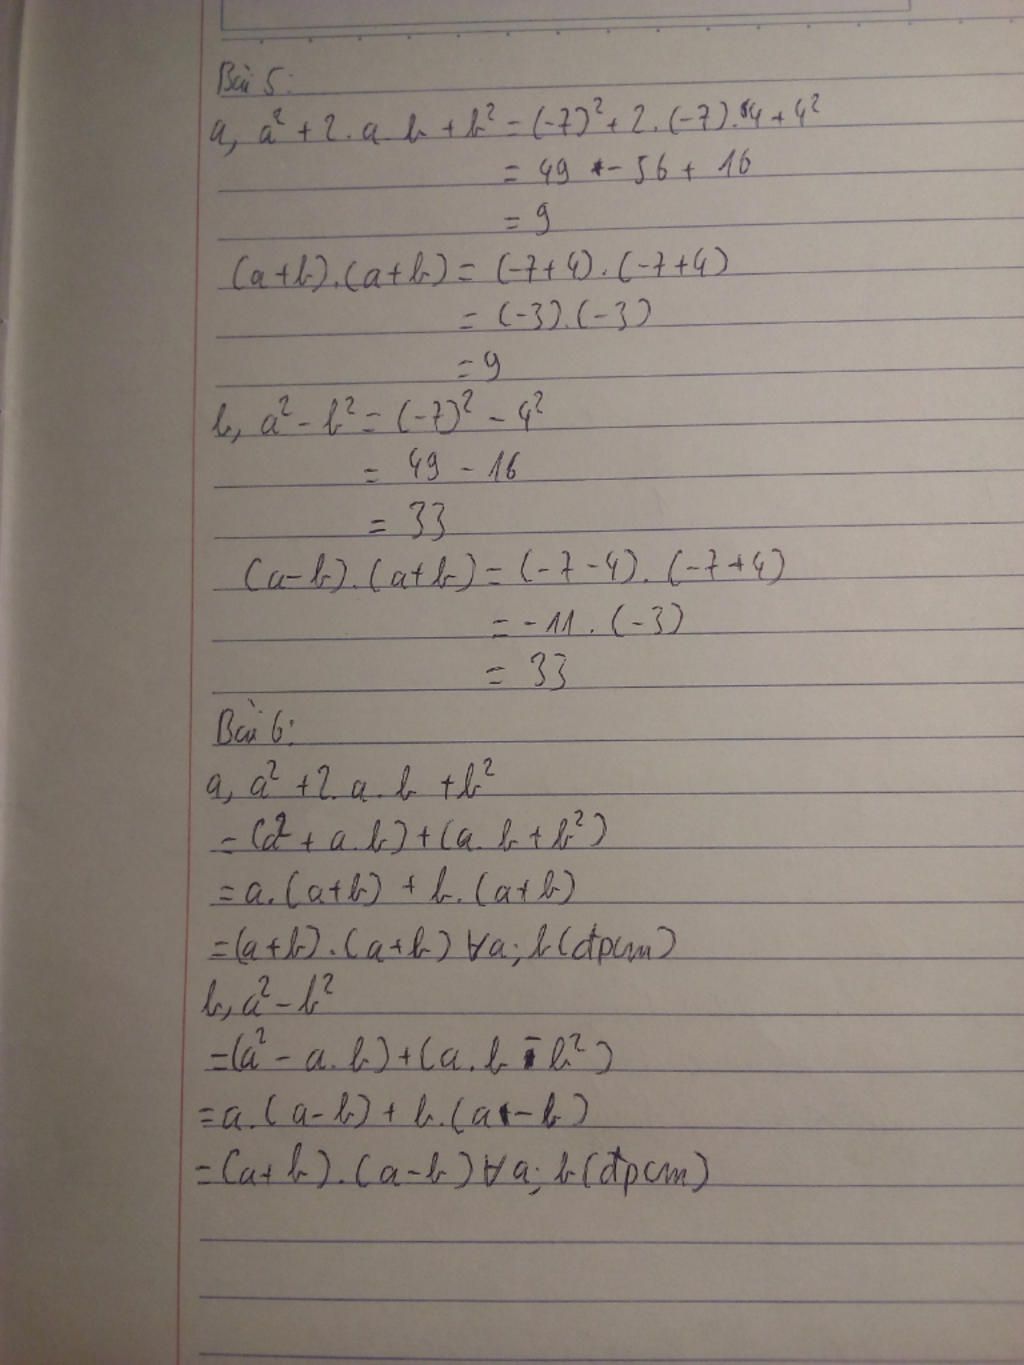 Bài 5:
a, a² + 2 . a . b + b² = (-7)² + 2 . (-7) . 4 + 4²
= 49 - 56 + 16
= 9
(a+b).(a+b) = (-7+4).(-7+4)
= (-3).(-3)
= 9
b, a² - b² = (-7)² - 4²
= 49 - 16
= 33
(a-b).(a+b) = (-7-4).(-7+4)
= -11.(-3)
= 33
Bài 6:
a, a² + 2 . a . b + b²
= (a² + a.b) + (a.b + b²)
= a.(a+b) + b.(a+b)
= (a+b).(a+b) ∀a;b (đpcm)
b, a² - b²
= (a² - a.b) + (a.b - b²)
= a.(a-b) + b.(a-b)
= (a+b).(a-b) ∀a;b (đpcm)